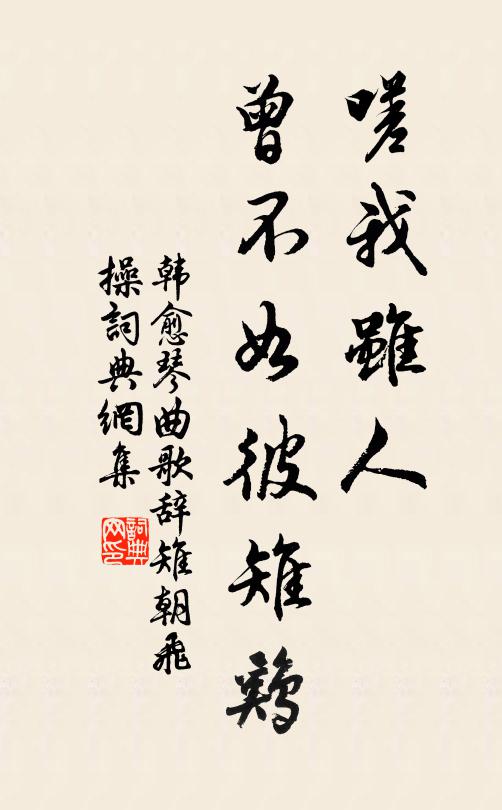 嗟我雖人
曾不如彼雉鷄
韩愈琴曲歌辞雉朝飛
操詞典網集
詞典
网印